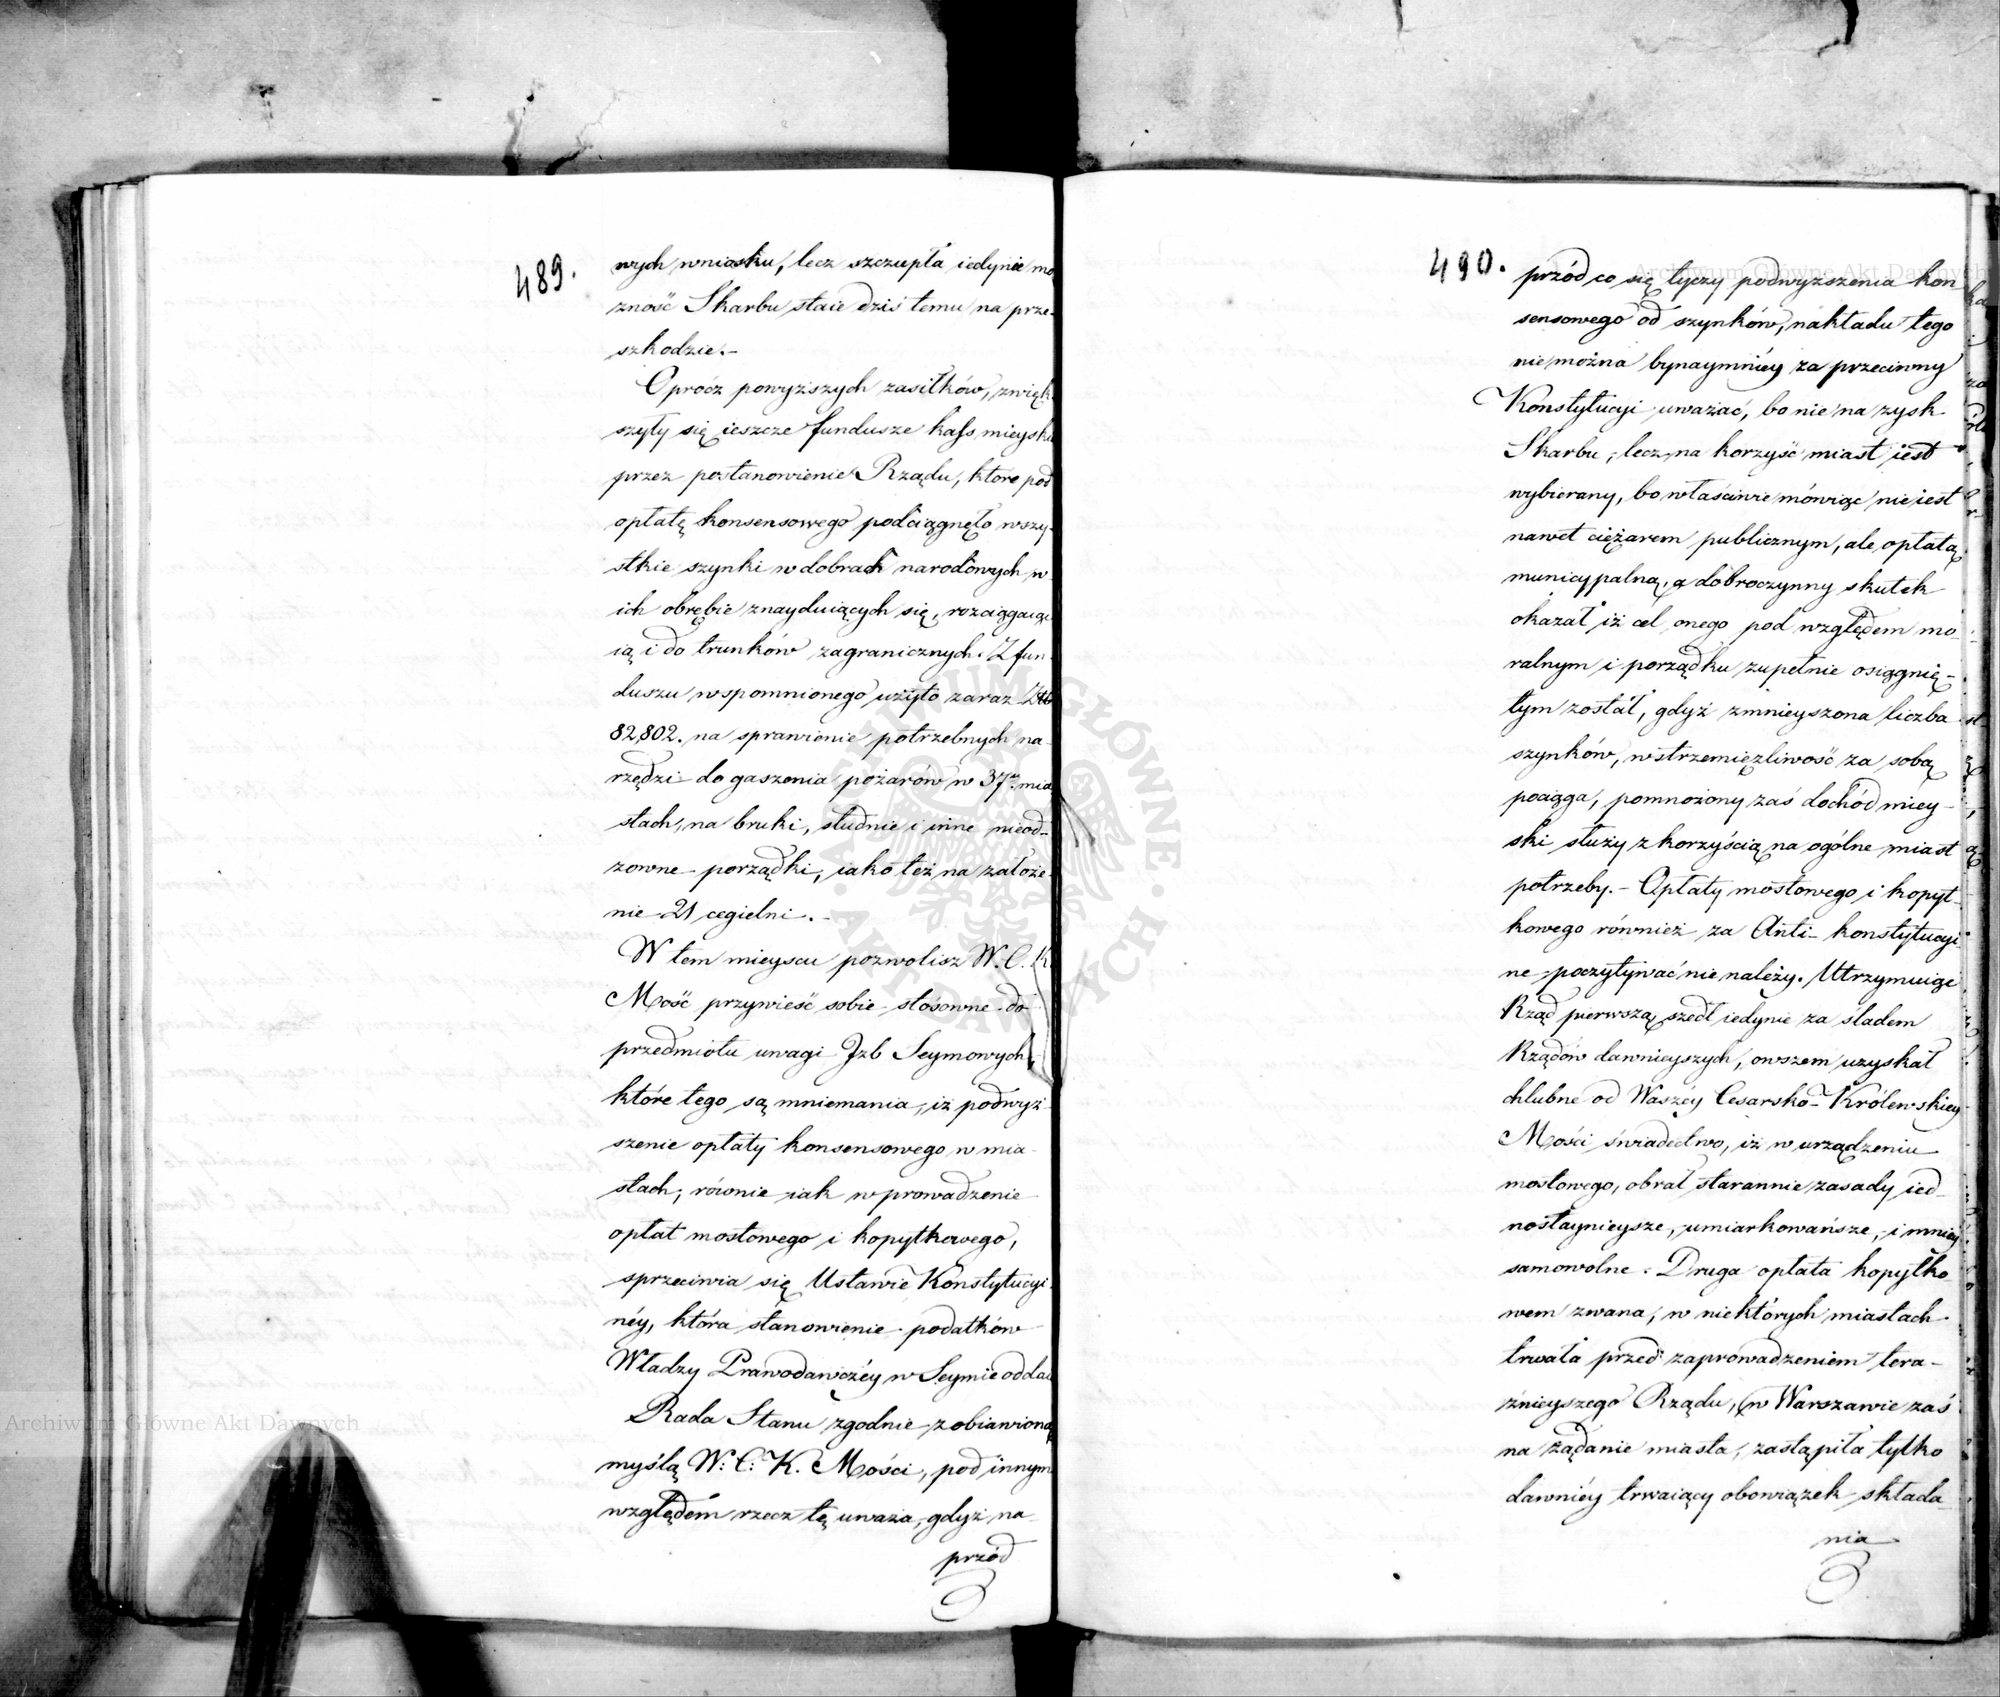 489.
wnych wniosku, lecz szczupła iedynie mo
zność Skarbu staie dziś temu na prze-
szkodzie.-
Oprócz powyższych zasiłków, zwięk
szyły się ieszcze fundusze kass mieysk
przez postanowienie Rządu, które pod
opłatę konsensowego podciągnęło wszy-
stkie szynki w dobrach narodowych w
ich obrębie znayduiących się, rozciągaiąc
ią i do trunków zagranicznych. Z fun-
duszu wspomnionego użyto zaraz Zł
82,802. na sprawienie potrzebnych na-
rzędzi do gaszenia pożarów w 37u mia
stach, na bruki, studnie i inne nieod-
zowne porządki, iako też na założe-
nie 21 cegielni.-
W tem mieyscu pozwolisz W. C. K.
Mość przywieść sobie stosowne do
przedmiotu uwagi Jzb Seymowych,
które tego są mniemania, iż podwyż-
szenie opłaty konsensowego w mia-
stach, równie iak wprowadzenie
opłat mostowego i kopytkowego,
sprzeciwia się Ustawie Konstytucyi-
néy, która stanowienie podatków
Władzy Prawodawczéy w Seymie oddaie
Rada Stanu zgodnie z obiawioną
myślą W: C: K. Mości, pod innym
względem rzecz tę uważa, gdyż na-
przód
490.
przód co się tyczy podwyższenia kon-
sensowego od szynków, nakładu tego
nie można bynaymniéy za przeciwny
Konstytucyi uważać, bo nie na zysk
Skarbu, lecz na korzyść miast iest
wybierany, bo właściwie mówiąc nie iest
nawet ciężarem publicznym, ale opłatą
municypalną, a dobroczynny skutek
okazał iż cel onego pod względem mo-
ralnym i porządku zupełnie osiągnię-
tym został, gdyż zmnieyszona liczba
szynków, wstrzemięzliwość za sobą
pociąga, pomnożony zaś dochód miey-
ski służy z korzyścią na ogólne miast
potrzeby.- Opłaty mostowego i kopyt-
kowego również za Anti-konstytucyi-
ne poczytywać nie należy. Utrzymuiąc
Rząd pierwszą, szedł iedynie za śladem
Rządów dawnieyszych, owszem uzyskał
chlubne od Waszéy Cesarsko-Królewskiey
Mości świadectwo, iż w urządzeniu
mostowego, obrał starannie zasady ied-
nostaynieysze, umiarkowańsze, i mniéy
samowolne. Druga opłata kopytko-
wem zwana, w niektórych miastach
trwała przed zaprowadzeniem tera-
źnieyszego Rządu, w Warszawie zaś
na żądanie miasta, zastąpiła tylko
dawniéy trwaiący obowiązek składa-
nia
Archiwum Główne Akt Dawnych
Archiwum Główne Akt Dawnych
ARCHIWUM GŁÓWNE AKT DAWNYCH